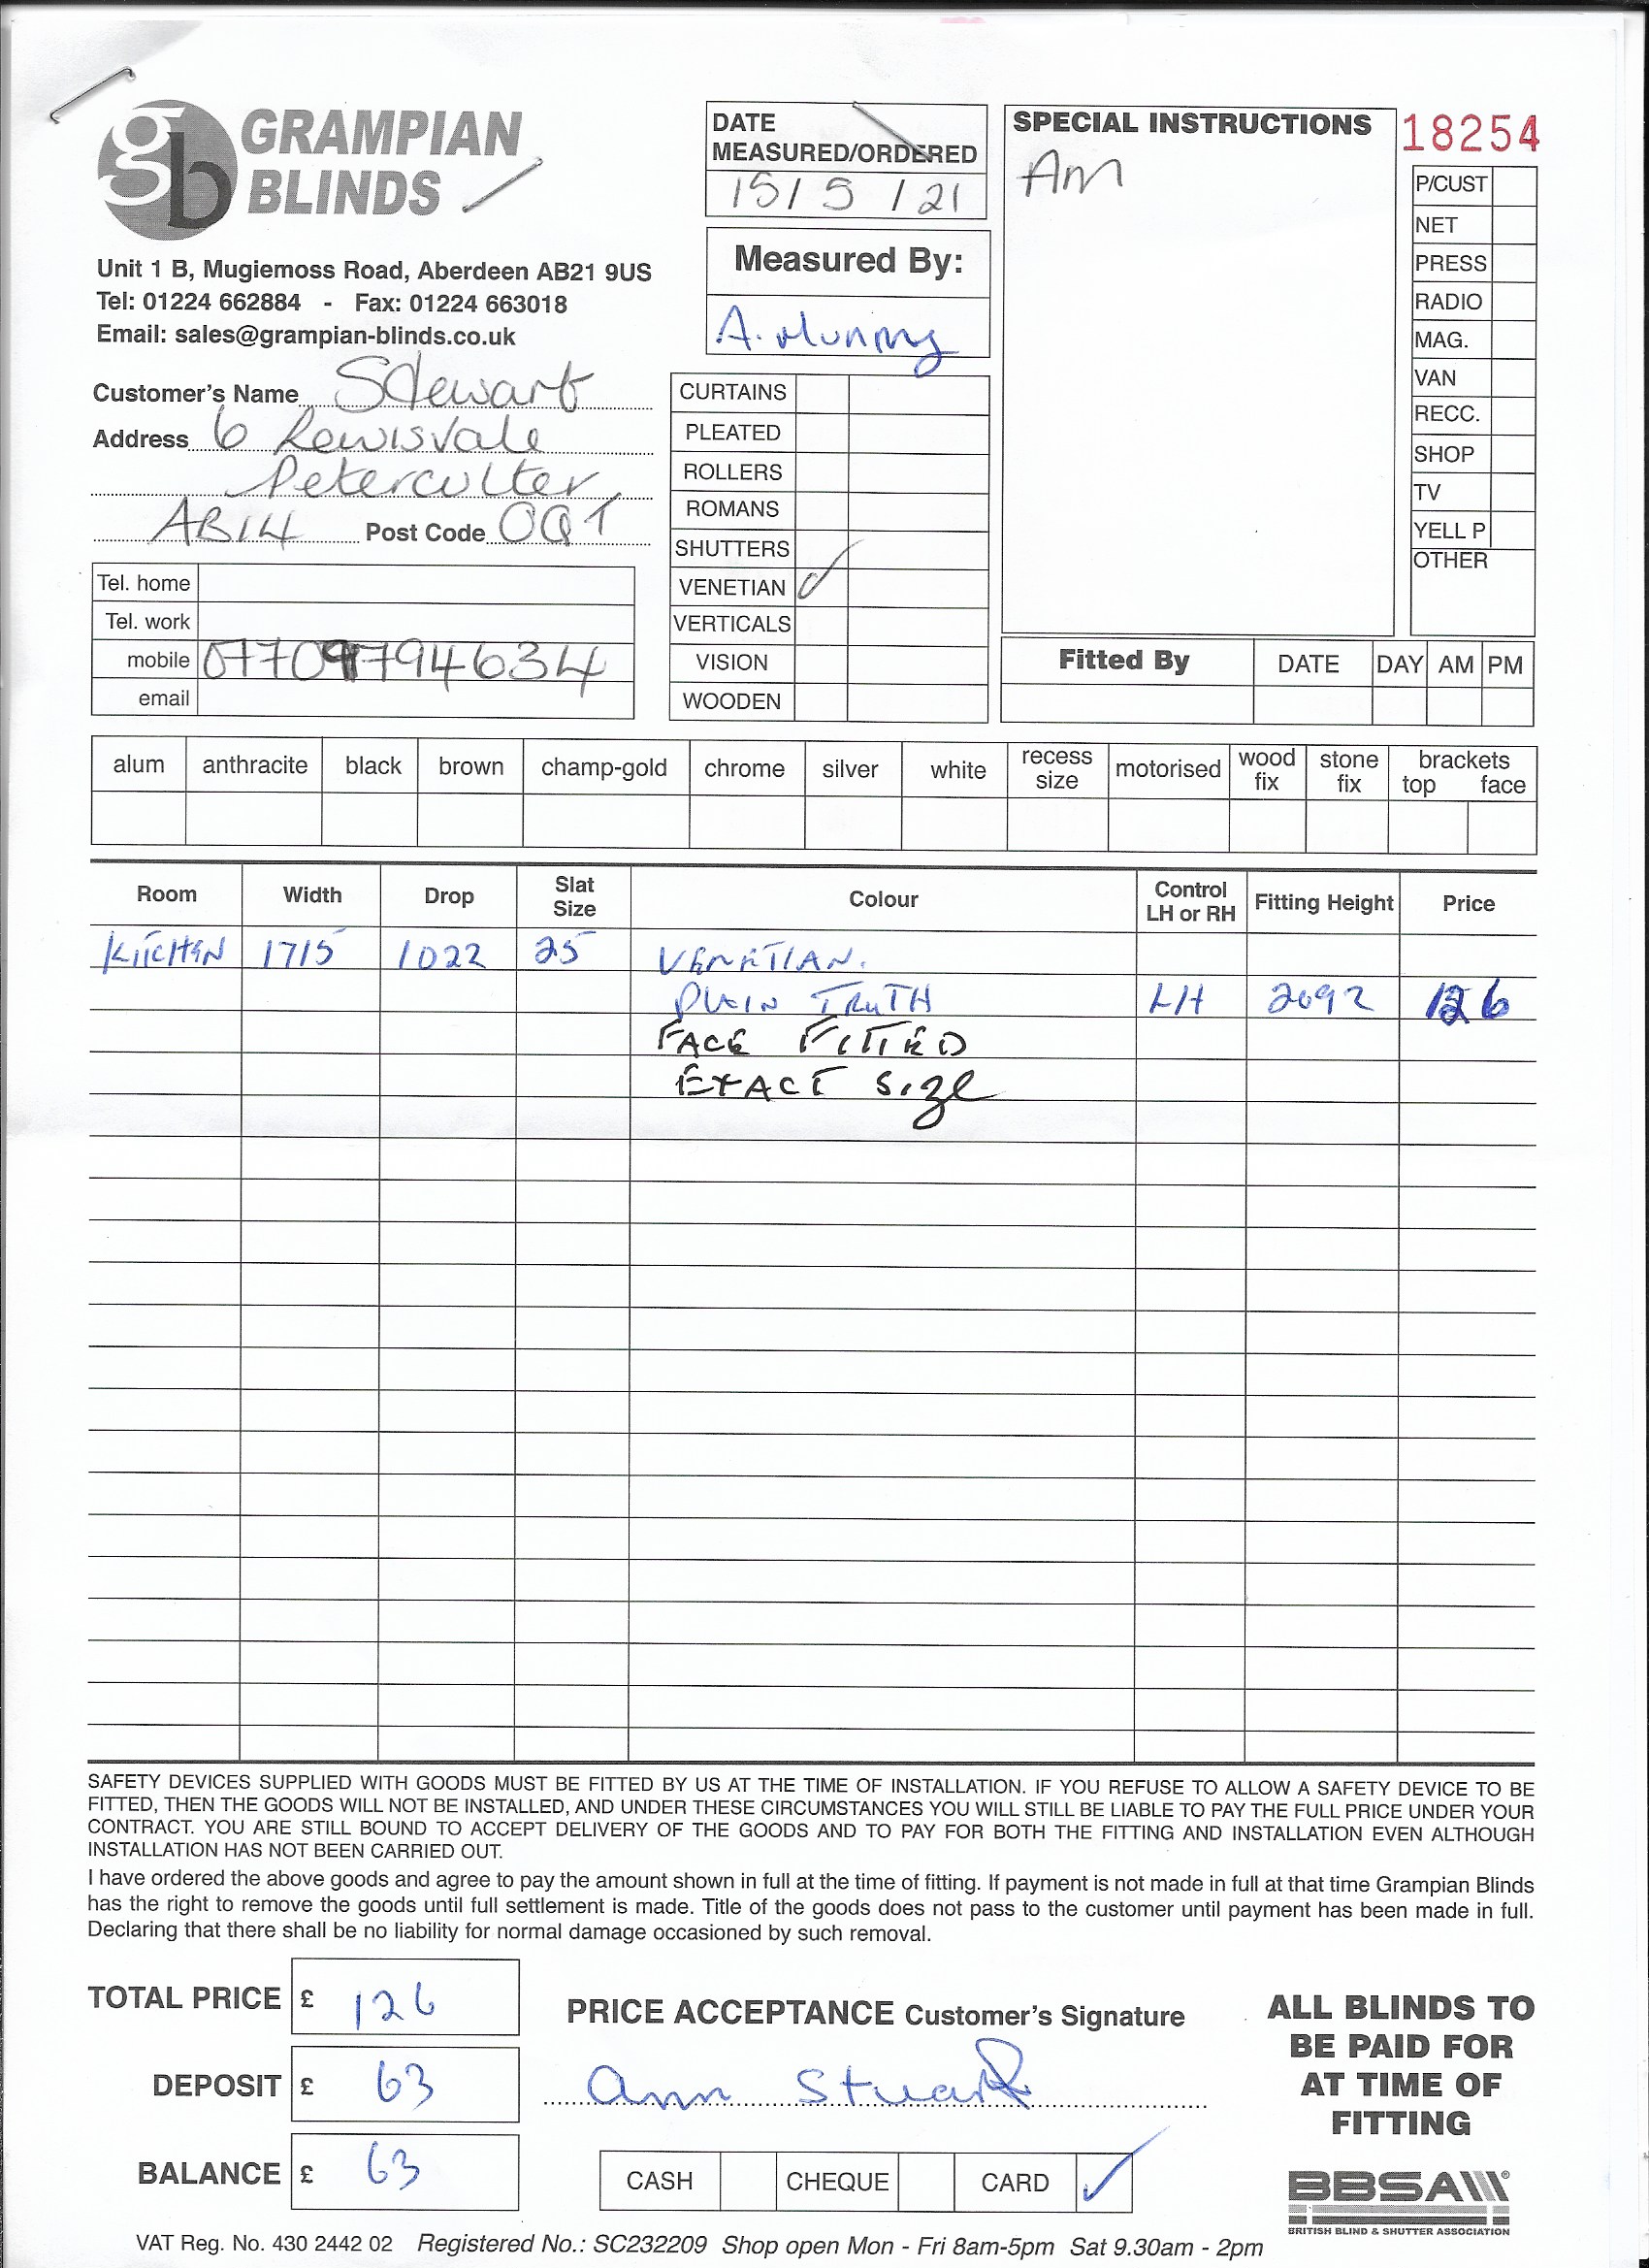 gb GRAMPIAN
BLINDS
Unit 1 B, Mugiemoss Road, Aberdeen AB21 9US
Tel: 01224 662884 - Fax: 01224 663018
Email: sales@grampian-blinds.co.uk
Customer's Name Stewart
Address 6 Lewisvale
Peterculter
AB14 Post Code 0QT
Tel. home
Tel. work
mobile 07709794634
email
DATE
MEASURED/ORDERED
15/5/21
Measured By:
A. Murray
CURTAINS
PLEATED
ROLLERS
ROMANS
SHUTTERS
VENETIAN ✓
VERTICALS
VISION
WOODEN
SPECIAL INSTRUCTIONS
Am
18254
P/CUST
NET
PRESS
RADIO
MAG.
VAN
RECC.
SHOP
TV
YELL P
OTHER
Fitted By DATE DAY AM PM
alum anthracite black brown champ-gold chrome silver white recess size motorised wood fix stone fix brackets top face
Room Width Drop Slat Size Colour Control LH or RH Fitting Height Price
KITCHEN 1715 1022 25 VENETIAN.
PLAIN TRUTH LH 2092 126
FACE FITTED
EXACT SIZE
SAFETY DEVICES SUPPLIED WITH GOODS MUST BE FITTED BY US AT THE TIME OF INSTALLATION. IF YOU REFUSE TO ALLOW A SAFETY DEVICE TO BE
FITTED, THEN THE GOODS WILL NOT BE INSTALLED, AND UNDER THESE CIRCUMSTANCES YOU WILL STILL BE LIABLE TO PAY THE FULL PRICE UNDER YOUR
CONTRACT. YOU ARE STILL BOUND TO ACCEPT DELIVERY OF THE GOODS AND TO PAY FOR BOTH THE FITTING AND INSTALLATION EVEN ALTHOUGH
INSTALLATION HAS NOT BEEN CARRIED OUT.
I have ordered the above goods and agree to pay the amount shown in full at the time of fitting. If payment is not made in full at that time Grampian Blinds
has the right to remove the goods until full settlement is made. Title of the goods does not pass to the customer until payment has been made in full.
Declaring that there shall be no liability for normal damage occasioned by such removal.
TOTAL PRICE £ 126
DEPOSIT £ 63
BALANCE £ 63
PRICE ACCEPTANCE Customer's Signature
Ann Stuart
CASH CHEQUE CARD ✓
ALL BLINDS TO
BE PAID FOR
AT TIME OF
FITTING
BBSA
BRITISH BLIND & SHUTTER ASSOCIATION
VAT Reg. No. 430 2442 02 Registered No.: SC232209 Shop open Mon - Fri 8am-5pm Sat 9.30am - 2pm